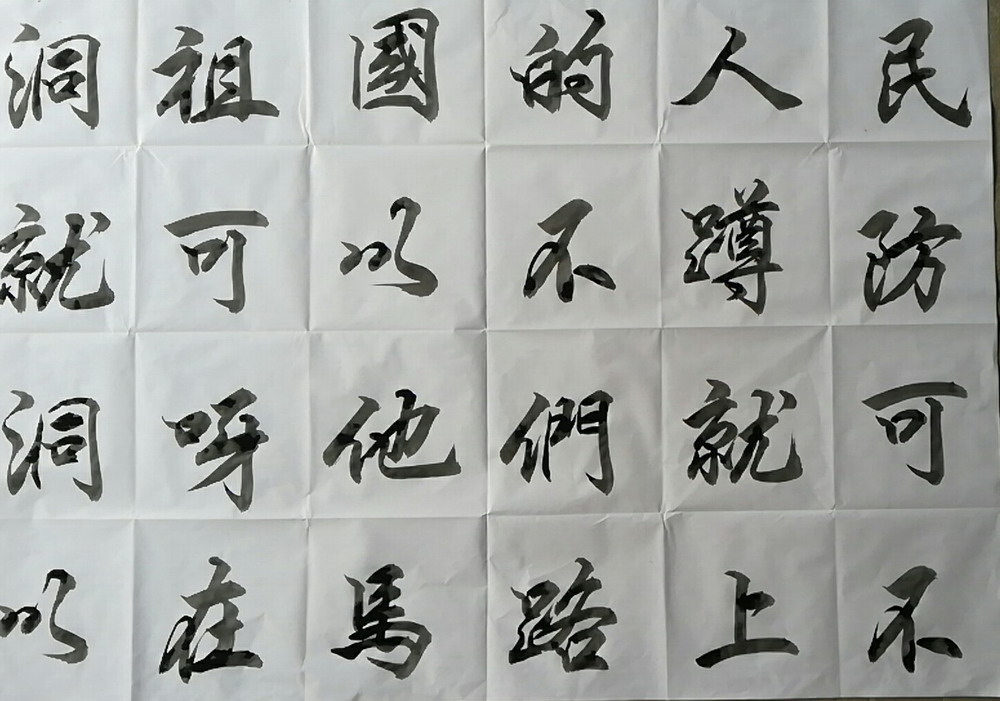 洞祖國的人民
就可以不蹲防
洞呀他們就可
以在馬路上不